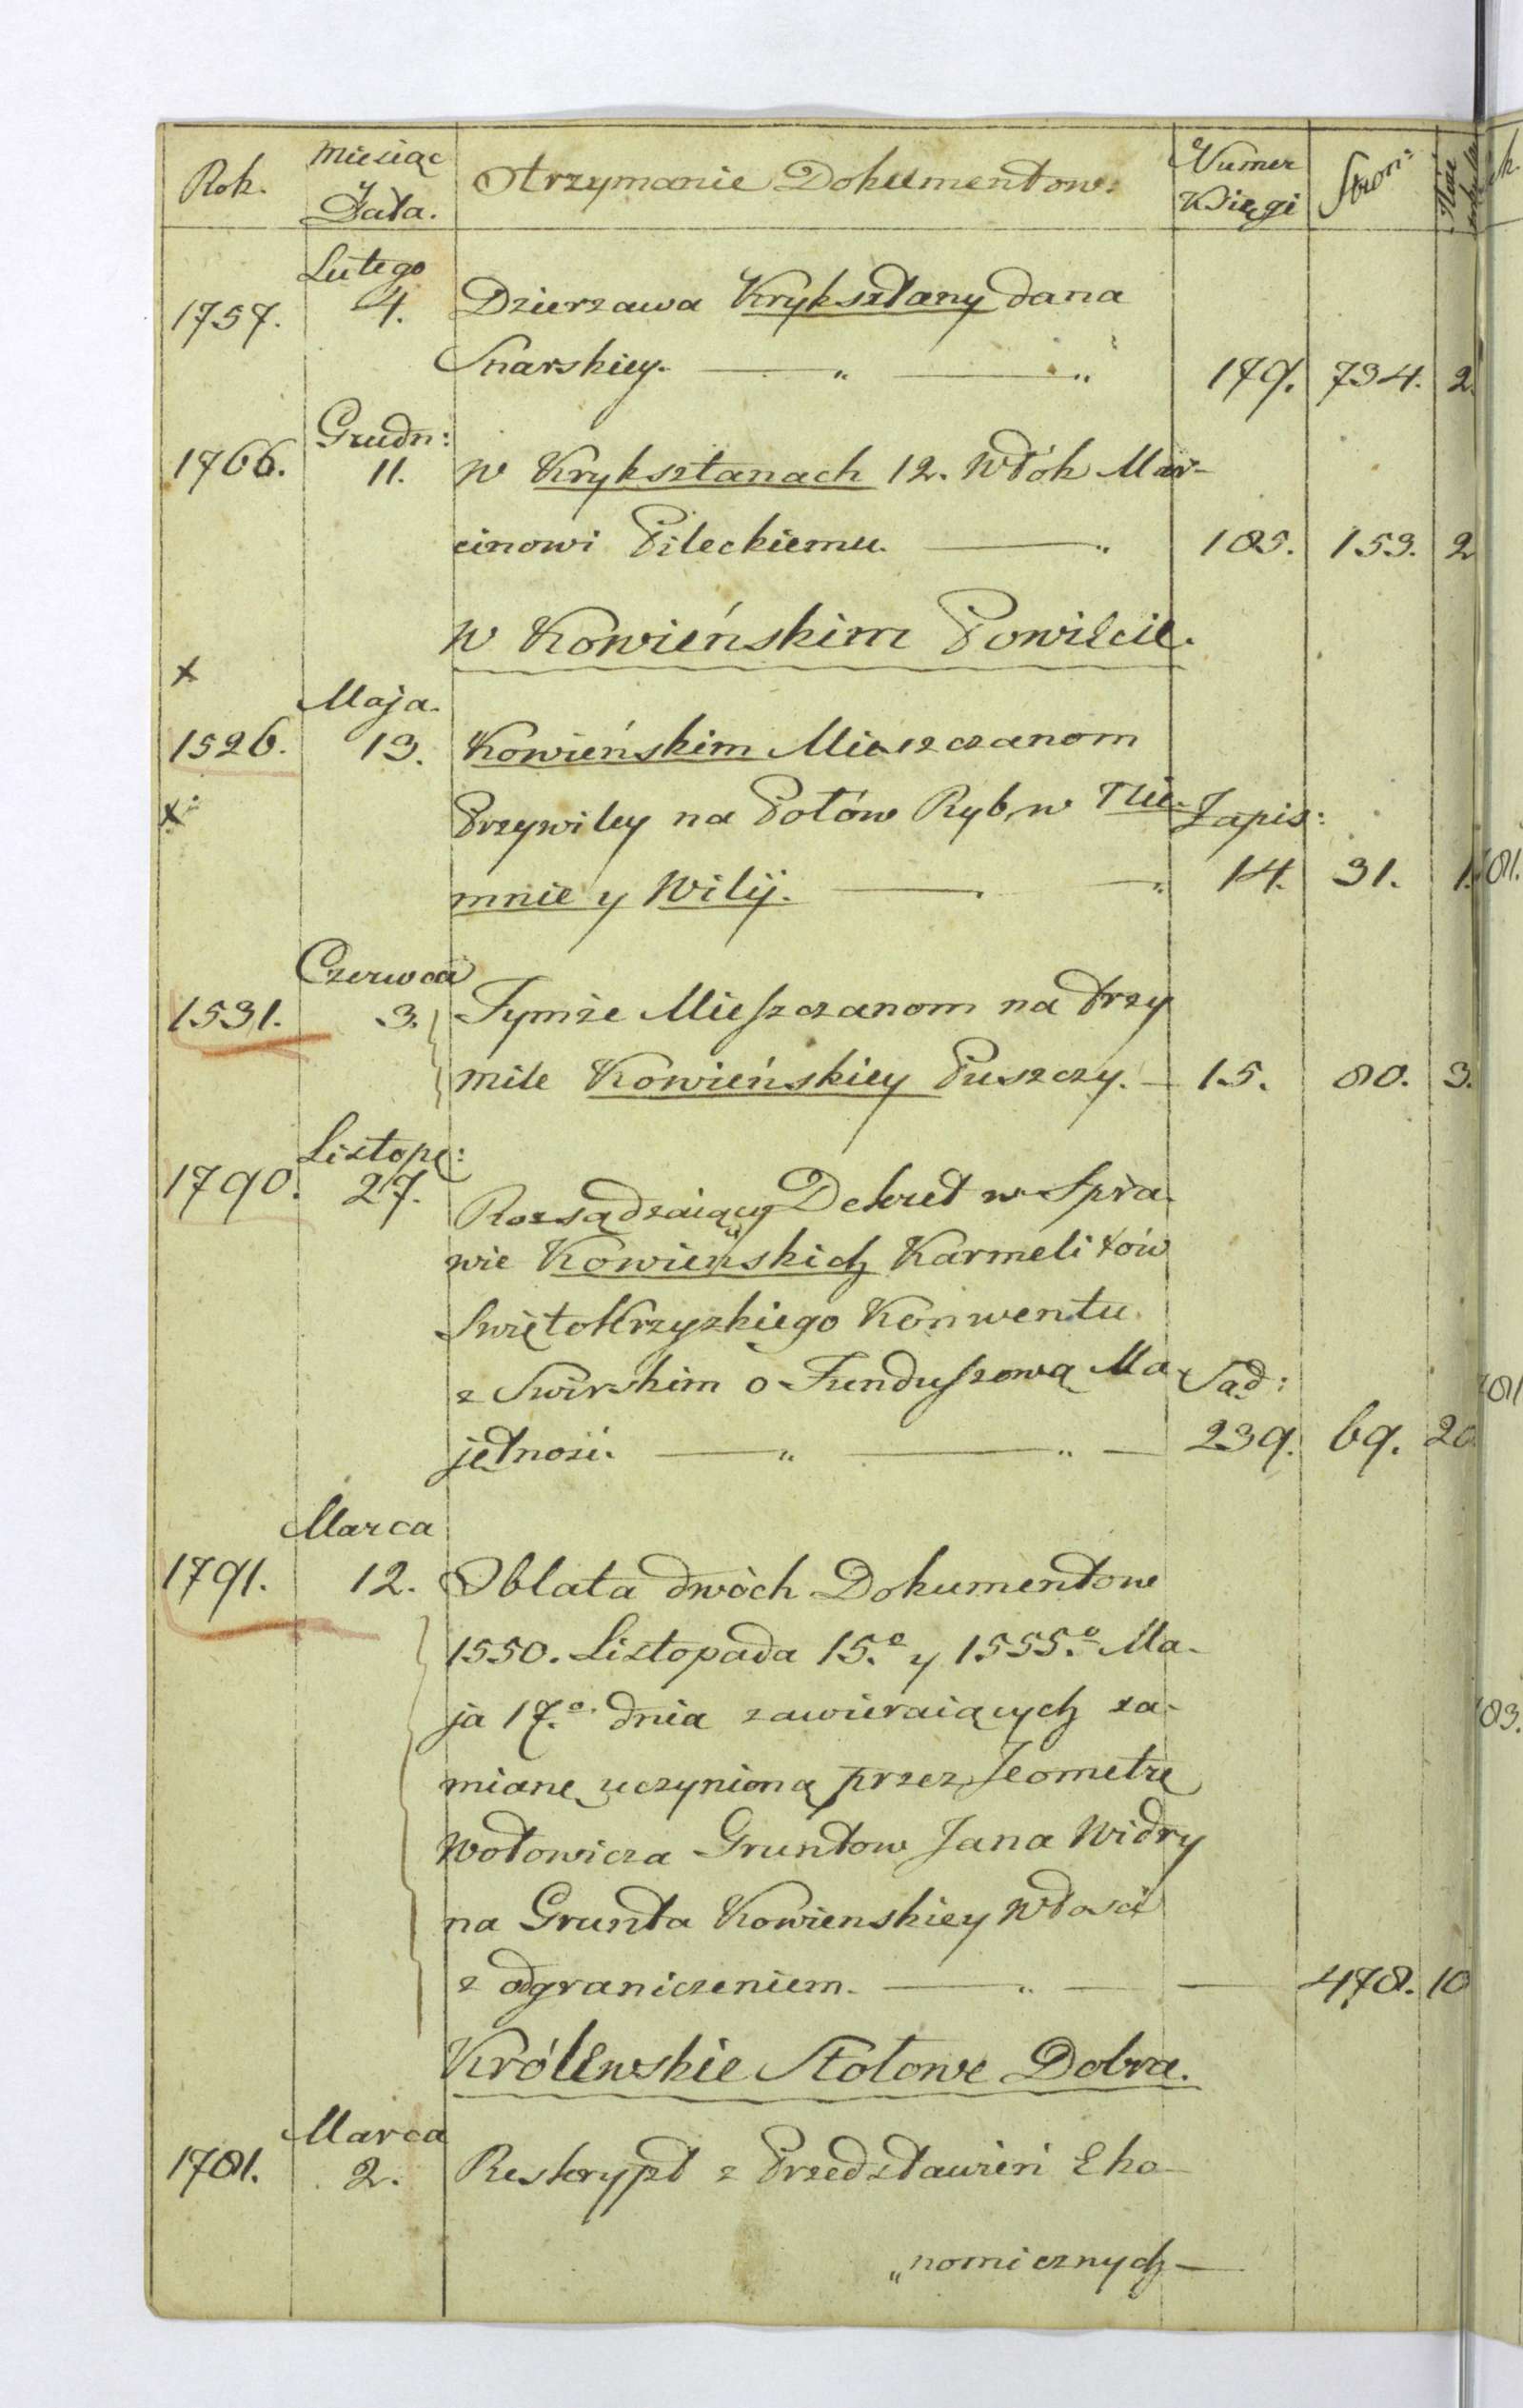 Rok. Miesiąc Data. Otrzymanie Dokumentow. Numer Księgi Stron: Ilość
Lutego
1757. 4. Dzierzawa Krykszłany dana
Snarskiey. 179. 734. 2.
Grudn:
1766. 11. w Kryksztanach 12. Włók Mar-
cinowi Pileckiemu. 185. 153. 2
w Kowieńskim Powiecie.
x
Maja.
1526. 13. Kowieńskim Mieszczanom
x Przywiley na Połów Ryb w Nie- Zapis:
mnie y Wilij. 14. 31. 1.
Czerwca
1531. 3. Tymże Mieszczanom na trzy
mile Kowieńskiey Puszczy. 15. 80. 3.
Listop:
1790. 27. Rozsądzaiący Dekret w Spra-
wie Kowieńskich Karmelitów
Swięto Krzyzkiego Konwentu
z Swirskim o Funduszową Ma- Sąd:
jętność. 239. 69. 20
Marca
1791. 12. Oblata dwóch Dokumentow
1550. Listopada 15.o y 1555.o Ma-
ja 17.o dnia zawieraiących za-
mianę uczynioną przez Jeometrę
Wołowicza Gruntow Jana Widry
na Grunta Kowienskiey Włości
z odgraniczeniem. 478. 10
Królewskie Stołowe Dobra.
Marca
1781. 2. Reskrypt z Przedstawień Eko-
„nomicznych